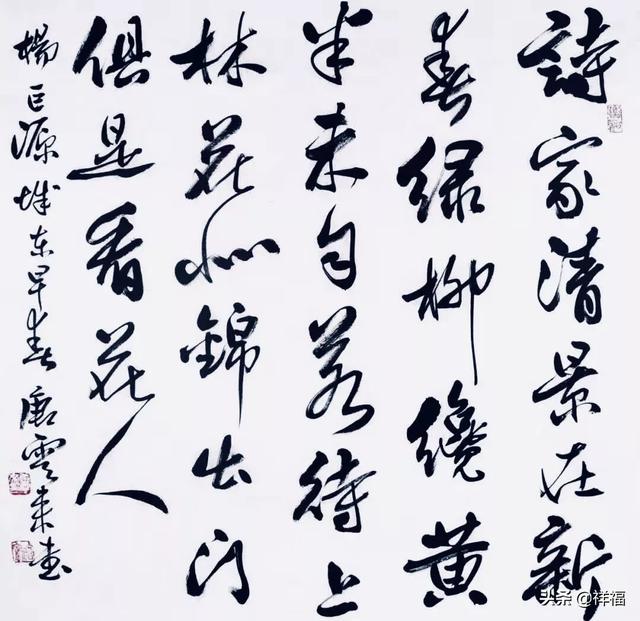 詩家清景在新
春绿柳纔黄
半未匀若待上
林花似錦出门
俱是看花人
楊巨源城东早春 唐雲来書
头条 @祥福